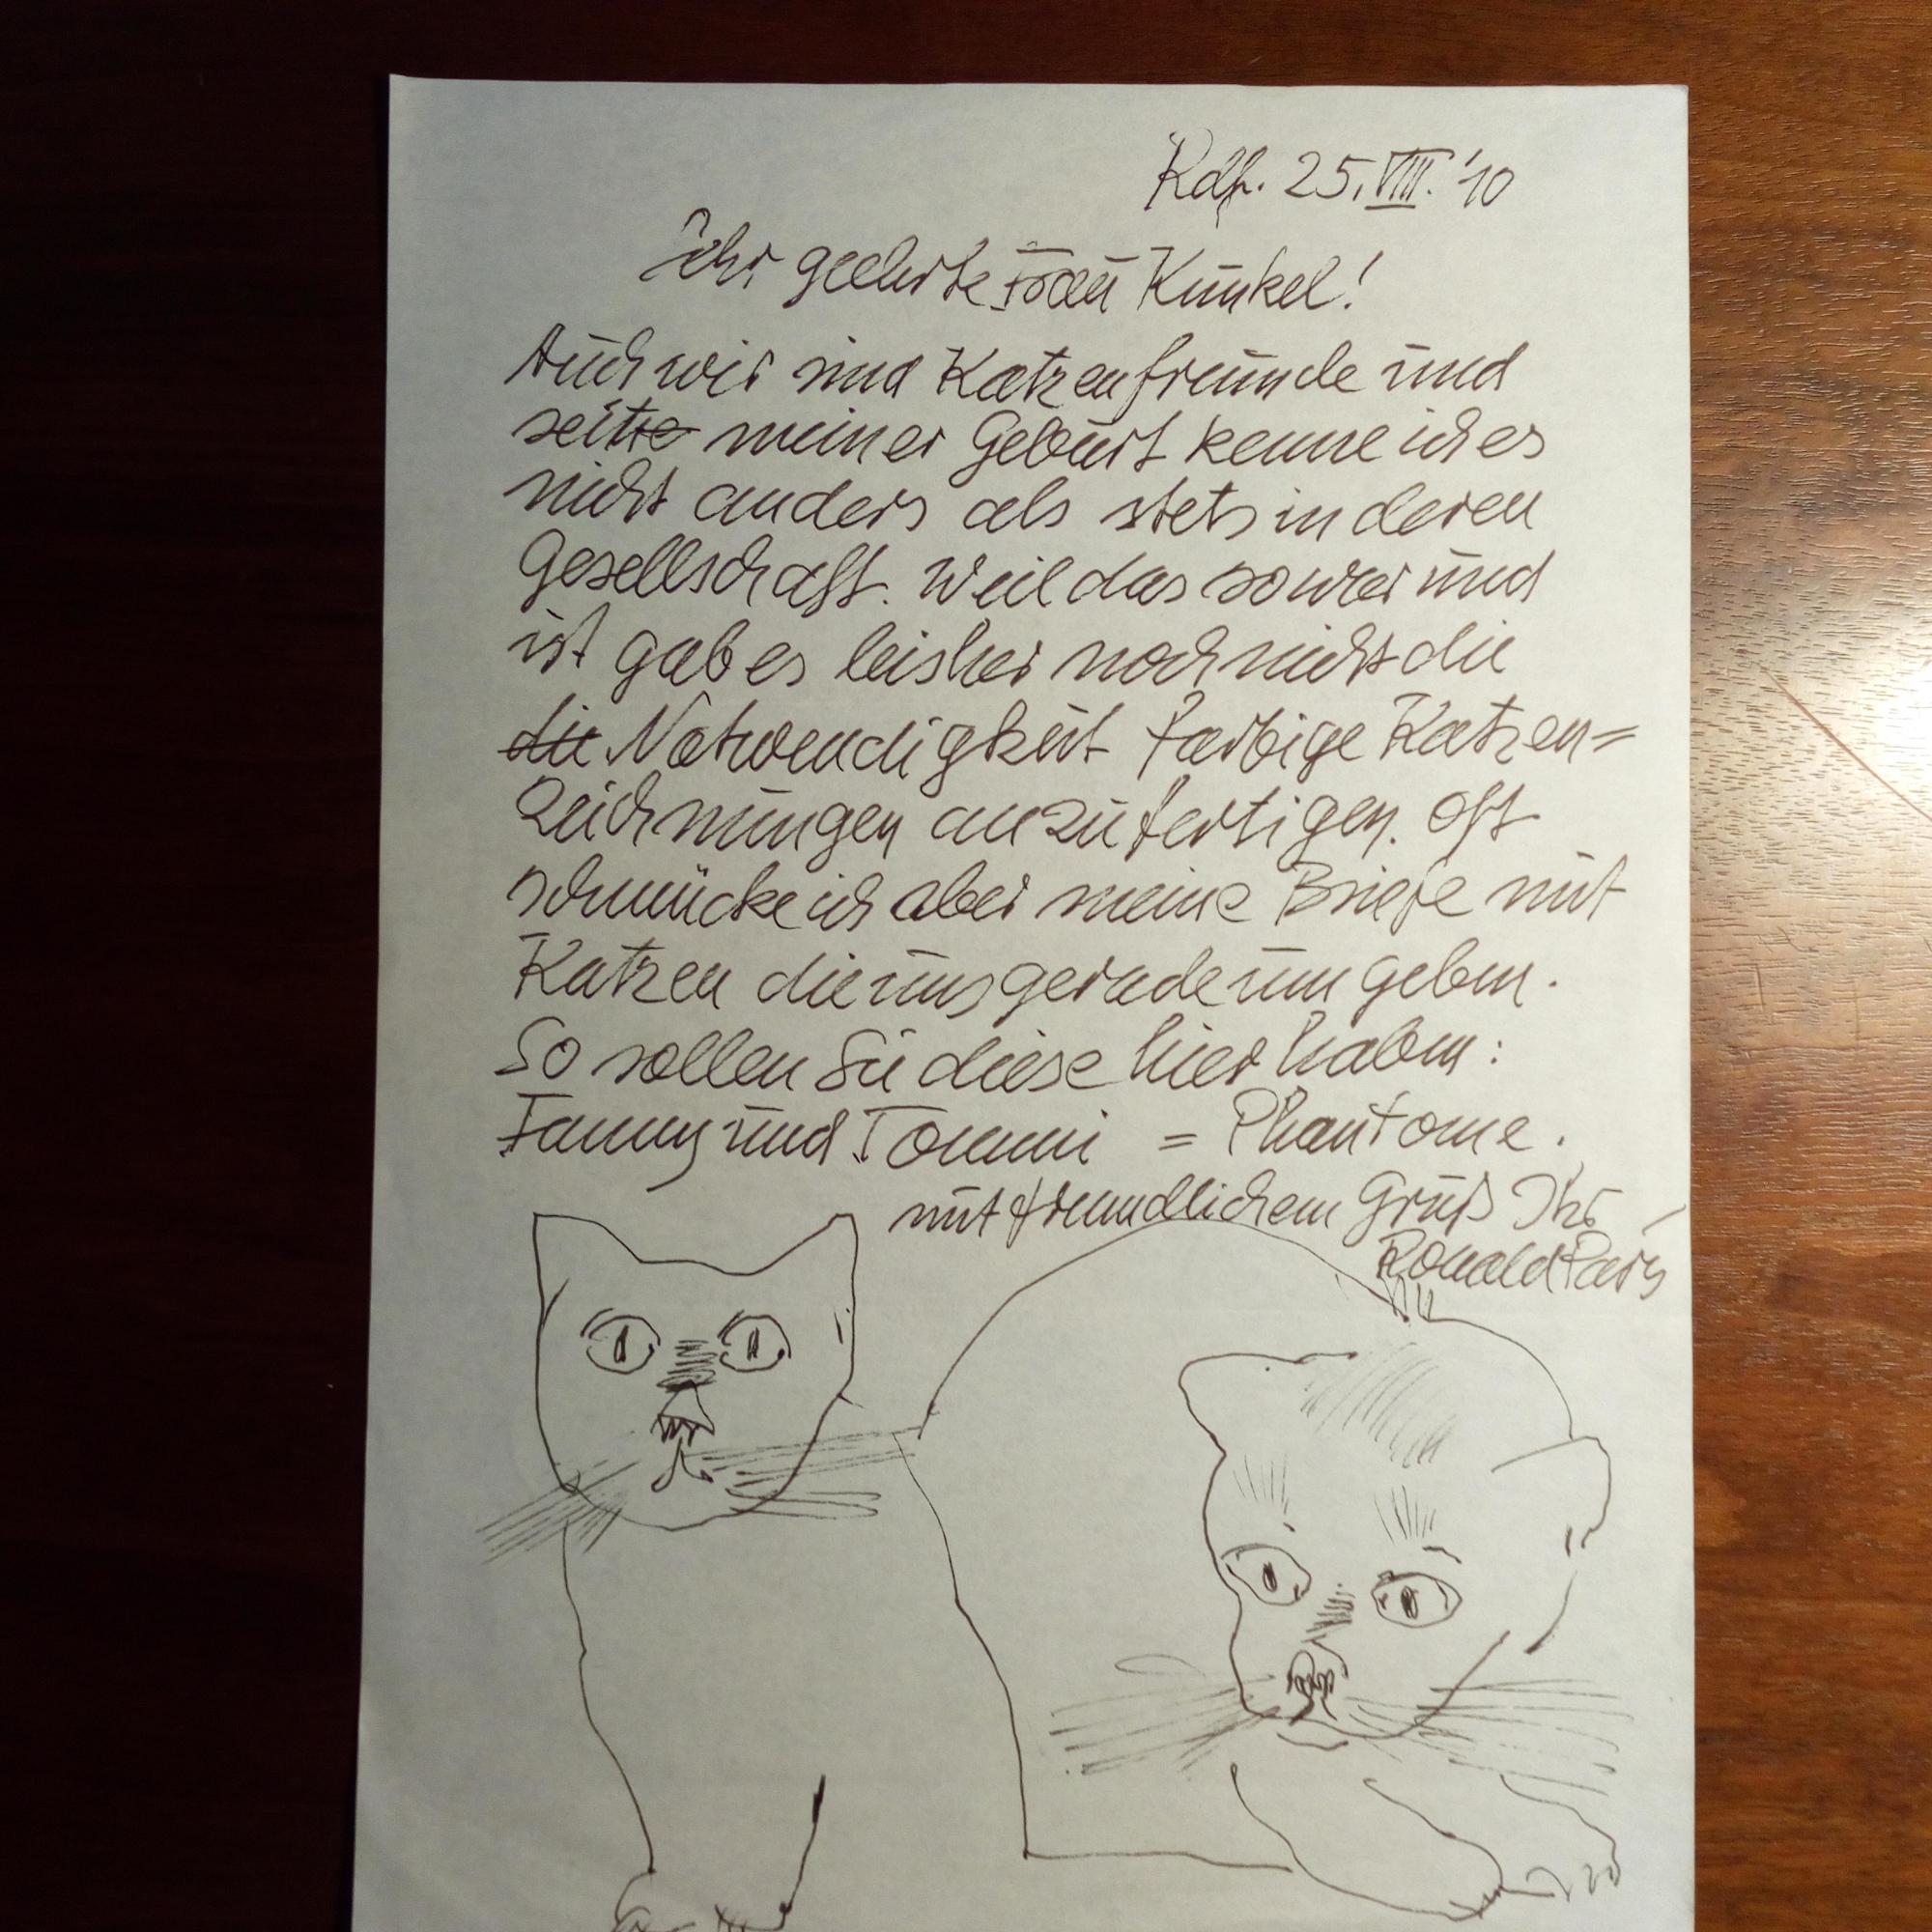 Rdf. 25.VIII.'10
Sehr geehrte Frau Kunkel!
Auch wir sind Katzenfreunde und
seit meiner Geburt kenne ich es
nicht anders als stets in deren
Gesellschaft. Weil das so war und
ist gab es bisher noch nicht die
die Notwendigkeit farbige Katzen=
Zeichnungen anzufertigen. Oft
schmücke ich aber meine Briefe mit
Katzen die uns gerade umgeben.
So sollen Sie diese hier haben:
Fanny und Tommi = Phantome.
mit freundlichem Gruß Ihr
Ronald Paris